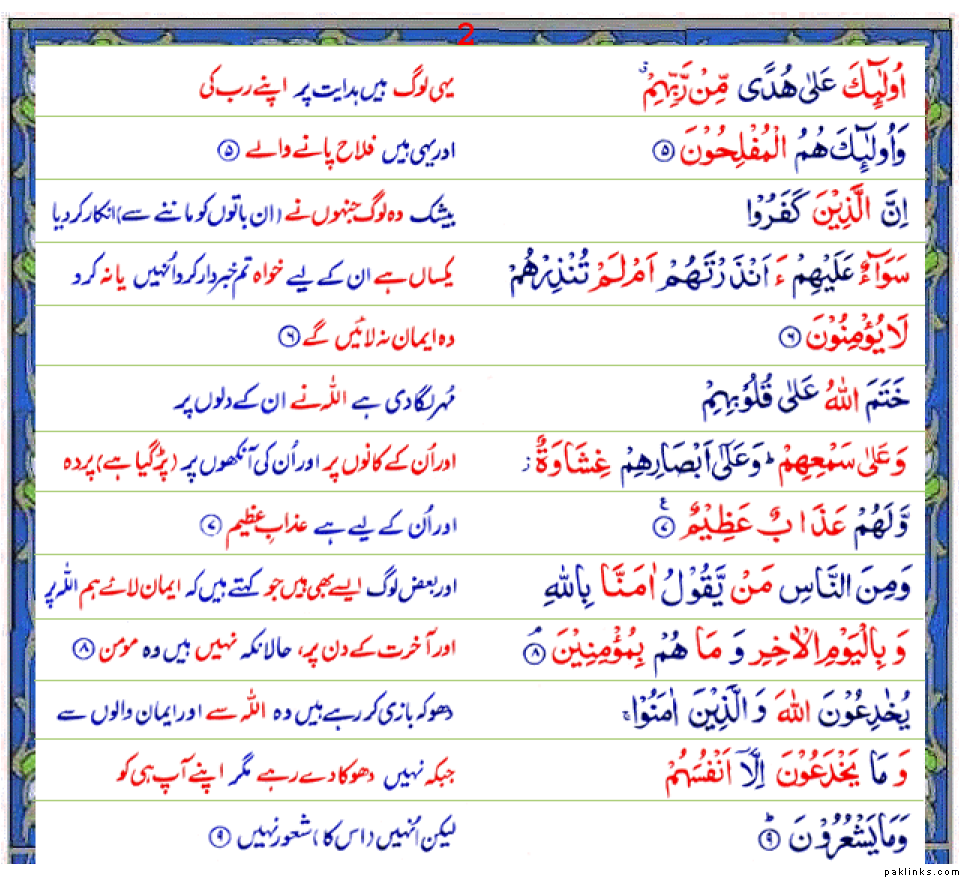 2
اُولٰٓئِكَ عَلٰی هُدًی مِّنْ رَّبِّهِمْ ۙ یہی لوگ ہیں ہدایت پر اپنے رب کی
وَاُولٰٓئِكَ هُمُ الْمُفْلِحُوْنَ ۵ اور یہی ہیں فلاح پانے والے ۵
اِنَّ الَّذِیْنَ كَفَرُوْا بیشک وہ لوگ جنہوں نے (ان باتوں کو ماننے سے) انکار کردیا
سَوَآءٌ عَلَیْهِمْ ءَ اَنْذَرْتَهُمْ اَمْ لَمْ تُنْذِرْهُمْ یکساں ہے ان کے لیے خواہ تم خبردار کرو اُنہیں یا نہ کرو
لَا یُؤْمِنُوْنَ ۶ وہ ایمان نہ لائیں گے ۶
خَتَمَ اللّٰهُ عَلٰی قُلُوْبِهِمْ مُہر لگادی ہے اللّٰہ نے ان کے دلوں پر
وَعَلٰی سَمْعِهِمْ ؕ وَعَلٰۤی اَبْصَارِهِمْ غِشَاوَةٌ ز اور اُن کے کانوں پر اور اُن کی آنکھوں پر (پڑ گیا ہے) پردہ
وَّلَهُمْ عَذَابٌ عَظِیْمٌ ۷ ع اور اُن کے لیے ہے عذابِ عظیم ۷
وَمِنَ النَّاسِ مَنْ یَّقُوْلُ اٰمَنَّا بِاللّٰهِ اور بعض لوگ ایسے بھی ہیں جو کہتے ہیں کہ ایمان لائے ہم اللّٰہ پر
وَ بِالْیَوْمِ الْاٰخِرِ وَ مَا هُمْ بِمُؤْمِنِیْنَ ۸ ۘ اور آخرت کے دن پر، حالانکہ نہیں ہیں وہ مومن ۸
یُخٰدِعُوْنَ اللّٰهَ وَ الَّذِیْنَ اٰمَنُوْا ۚ دھوکہ بازی کر رہے ہیں وہ اللّٰہ سے اور ایمان والوں سے
وَ مَا یَخْدَعُوْنَ اِلَّاۤ اَنْفُسَهُمْ جبکہ نہیں دھوکا دے رہے مگر اپنے آپ ہی کو
وَمَا یَشْعُرُوْنَ ۹ ؕ لیکن اُنہیں (اس کا) شعور نہیں ۹
paklinks.com